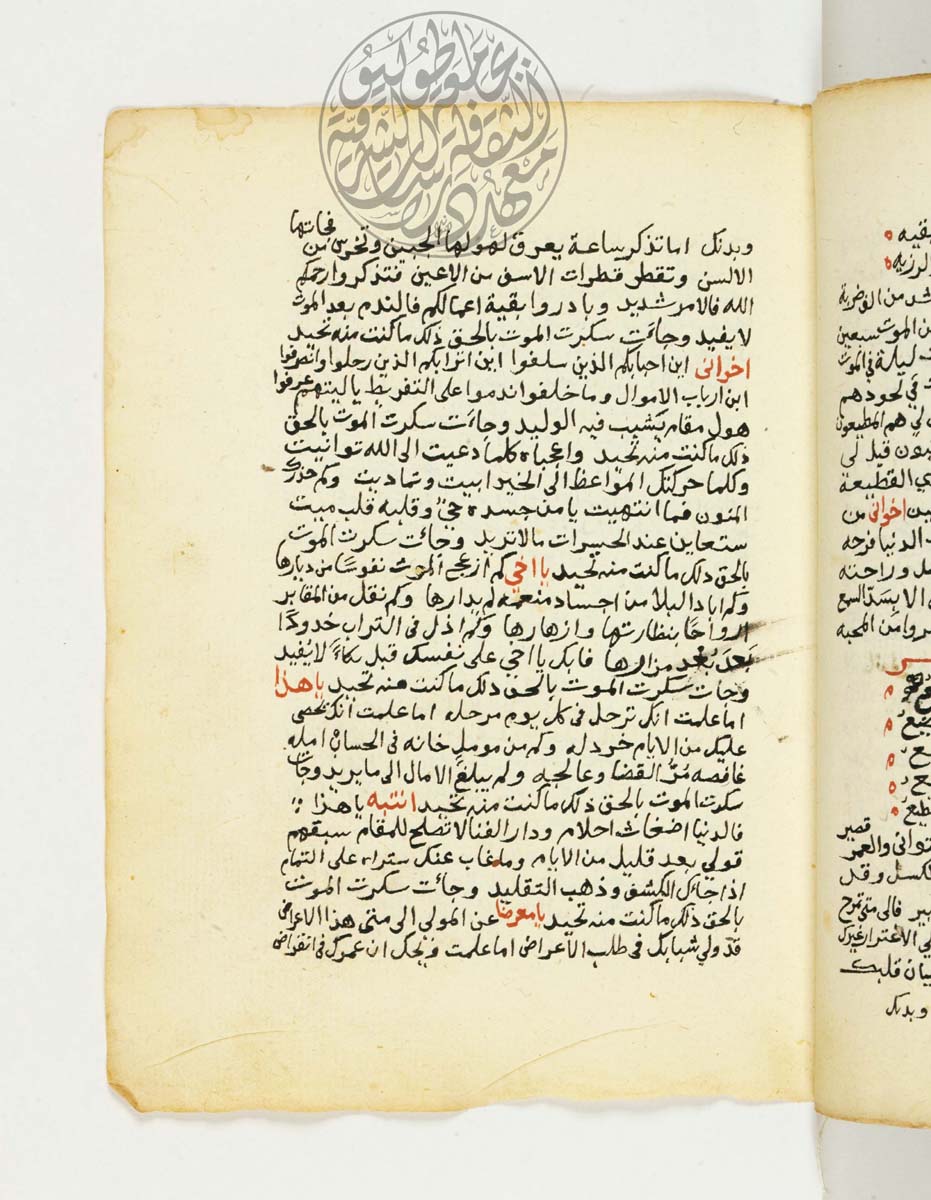 وبدنك اما تذكر ساعة يعرق لهولها الجبين وتخرس من فجاتها
الالسن وتقطر قطرات الاسف من الاعين فتذكروا رحمكم
الله فالامر شديد وبادروا بقية اعمالكم فالندم بعد الموت
لا يفيد وجاءت سكرت الموت بالحق ذلك ما كنت منه تحيد
اخوانى اين احبابكم الذين سلفوا اين اترابكم الذين رحلوا وانصرفوا
اين ارباب الاموال وما خلفوا ندموا على التفريط يا ليتهم عرفوا
هول مقام يشيب فيه الوليد وجاءت سكرت الموت بالحق
ذلك ما كنت منه تحيد واعجباه كلما دعيت الى الله توانيت
وكلما حركتك المواعظ الى الخير ابيت وتماديت وكم حذرك
المنون فما انتهيت يا من جسده حي وقلبه قلب ميت
ستعاين عند الحسرات ما لا تريد وجائت سكرت الموت
بالحق ذلك ما كنت منه تحيد يا اخي كم ازعج الموت نفوسا من ديارها
وكم اباد البلا من اجساد منعمه لم يدارها وكم نقل من المقابر
ارواحا بنظارتها وازهارها وكم اذل فى التراب خدودا
بعد بعد مزارها فابك يا اخي على نفسك قبل بكاء لا يفيد
وجات سكرت الموت بالحق ذلك ما كنت منه تحيد يا هذا
اما علمت انك ترحل فى كل يوم مرحله اما علمت انك تحصى
عليك من الايام خردله وكم من مومل خانه فى الحساب امله
غافصه مر القضا وعالجه ولم يبلغ الامال الى ما يريد وجات
سكرت الموت بالحق ذلك ما كنت منه تحيد انتبه يا هذا
فالدنيا اضغاث احلام ودار الفنا لا تصلح للمقام سبقهم
قولي بعد قليل من الايام وما غاب عنك ستراه على التمام
اذا جائك الكشف وذهب التقليد وجائت سكرت الموت
بالحق ذلك ما كنت منه تحيد يا معرضا عن المولى الى متى هذا الاعراض
قد ولي شبابك فى طلب الاعراض اما علمت ويحك ان عمرك فى انقراض